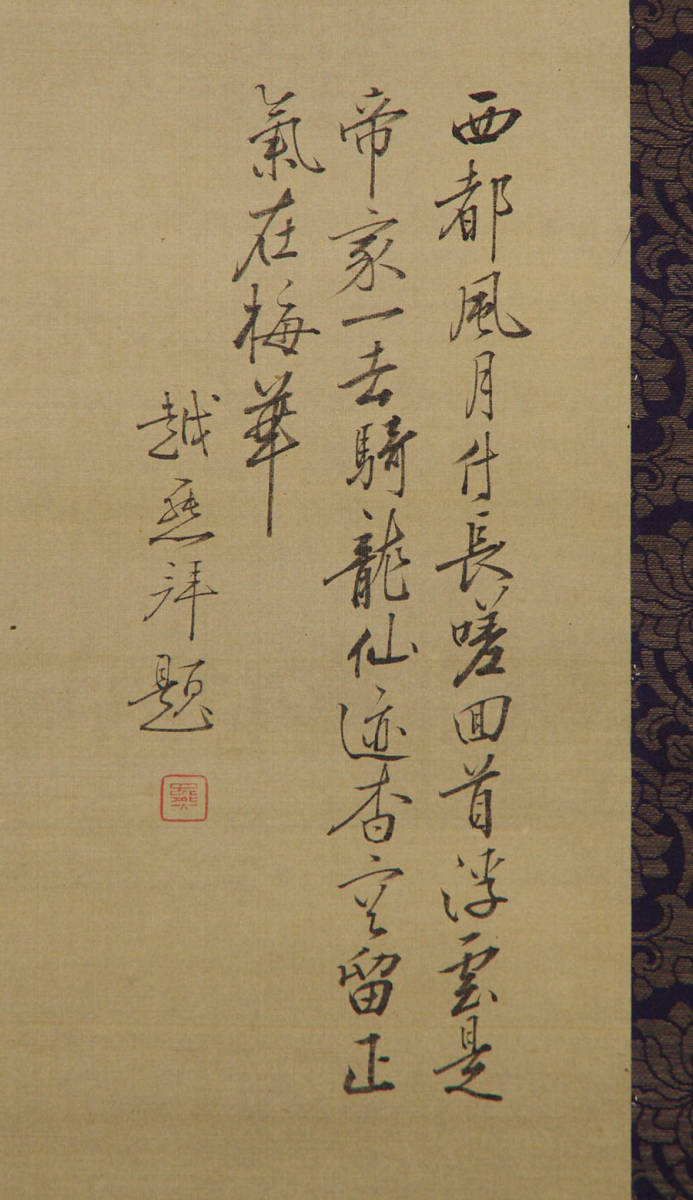 西都風月付長嗟回首浮雲是
帝家一去騎龍仙迹杳空留正
氣在梅華
越 拜題